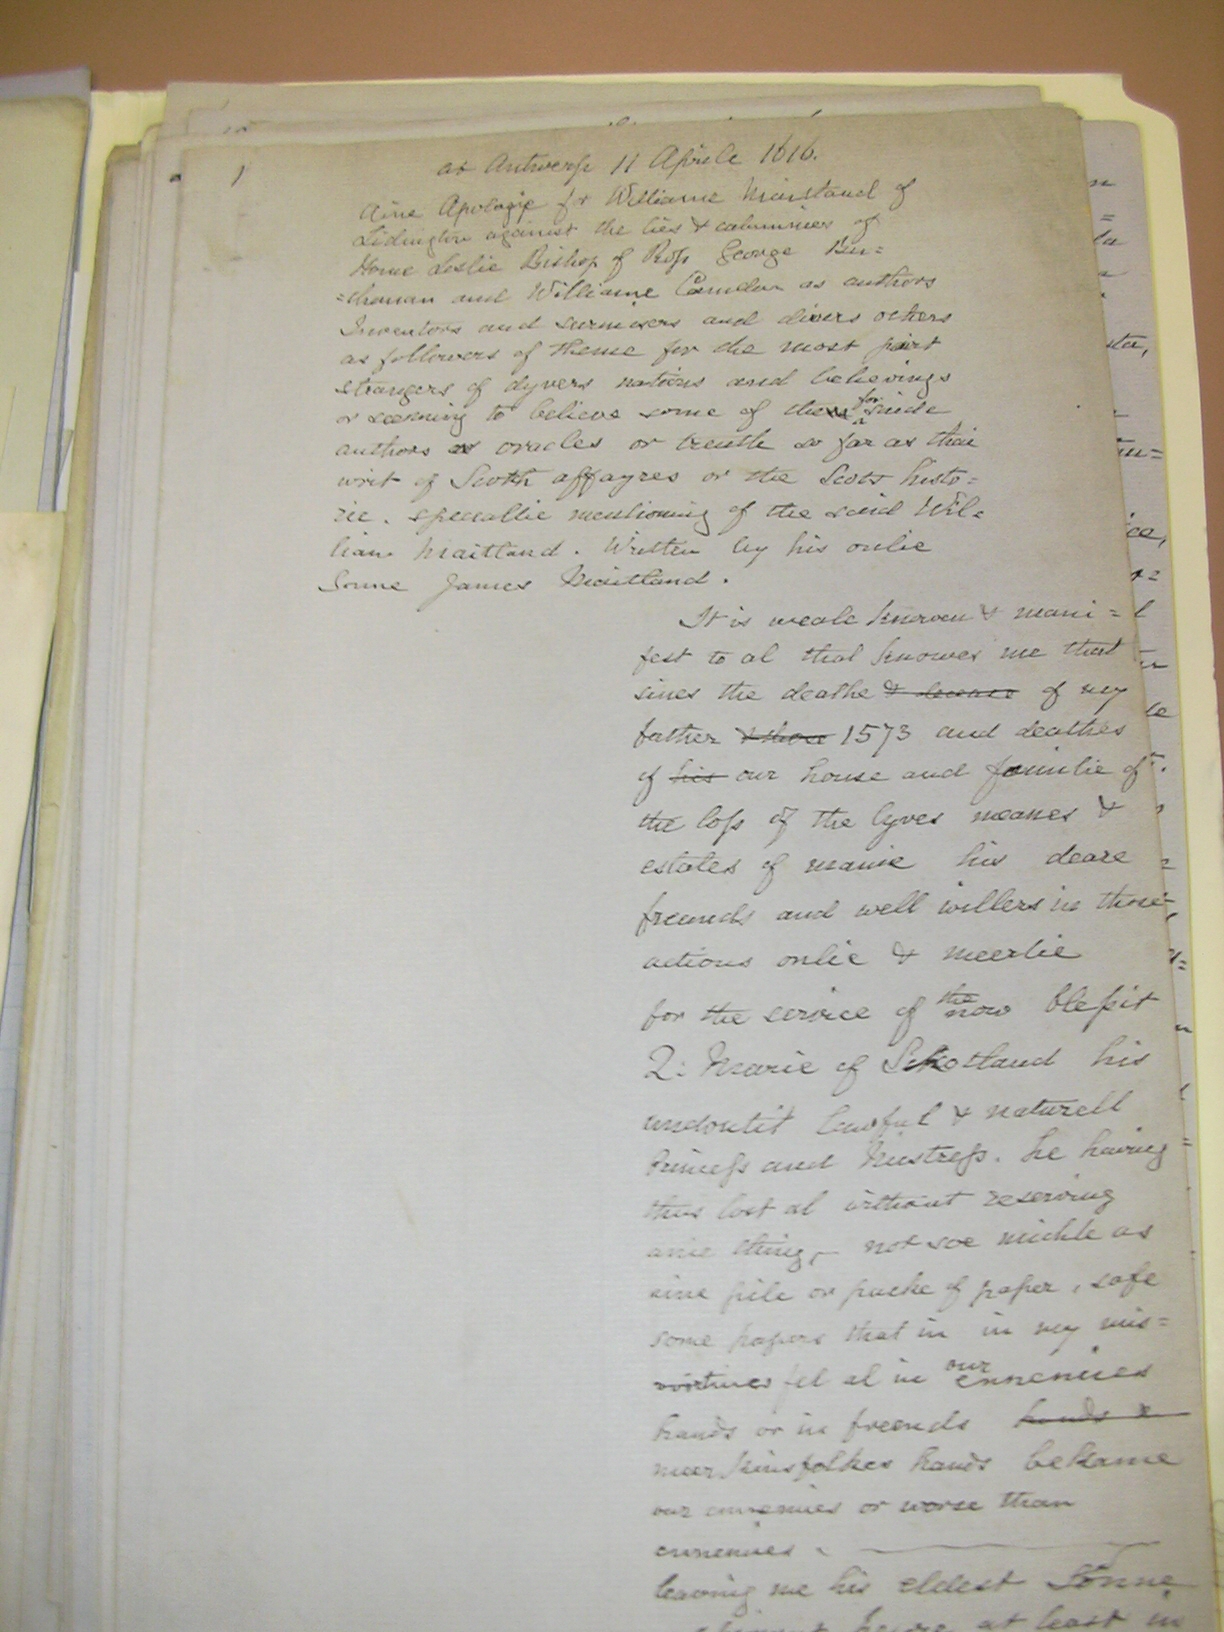 1
at Antwerp 11 Aprile 1616.
Aine Apologie for Williame Maitland of
Lidington against the lies & calumnies of
Home Leslie Bishop of Ross George Bu=
=chanan and Williame Camden as authors
Inventors and surmisers and divers others
as followers of theme for the most pairt
strangers of dyvers nations and believings
or seeming to believe some of these for saide
authors as oracles or treuth so far as thai
writ of Scoth affayres or the Scots histo=
rie. speciallie mentioning of the said Wil=
liam Maitland. Written by his onlie
Sonne James Maitland.
It is weale knowen & mani=
fest to al that knowes me that
sines the deathe & decease of my
father & those 1573 and deathes
of his our house and familie of
the loss of the lyves meanes &
estates of manie his deare
freends and well willers in those
actions onlie & meerlie
for the service of the now blessit
Q: Marie of Skotland his
undoutit lawful & naturell
Princess and Mistress. he having
thus lost al without reserving
anie thing, not soe mickle as
aine pile or packe of paper, safe
some papers that in in my mis=
fortunes fel al in our ennemies
hands or in freends hands &
meer kinsfolkes hands bekame
our ennemies or worse than
ennemies.
leaving me his eldest Sonne
heire at least in